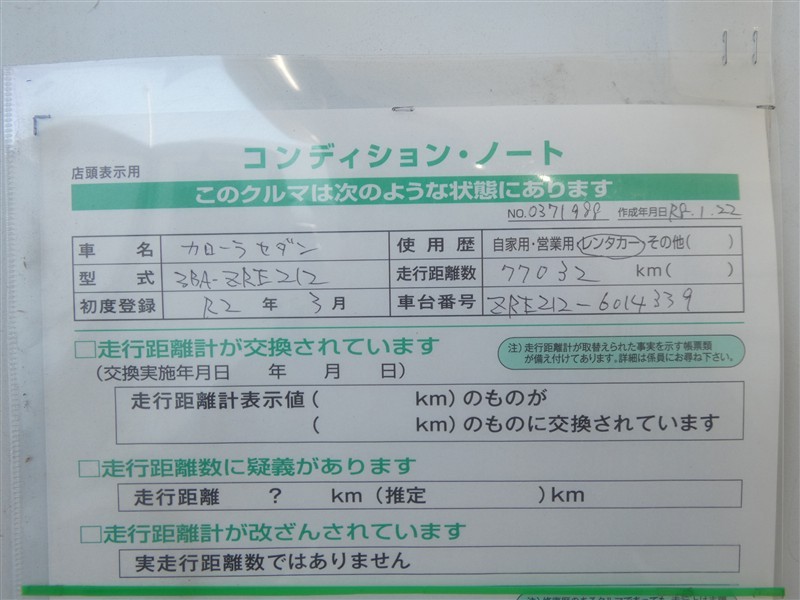 店頭表示用
コンディション・ノート
このクルマは次のような状態にあります
NO.0371988 作成年月日 R8.1.22
車名 カローラセダン 使用歴 自家用・営業用・レンタカー・その他( )
型式 3BA-ZRE212 走行距離数 77032 km( )
初度登録 R2 年 3 月 車台番号 ZRE212-6014339
□走行距離計が交換されています
注）走行距離計が取替えられた事実を示す帳票類
が備え付けてあります。詳細は係員にお尋ね下さい。
(交換実施年月日 年 月 日)
走行距離計表示値( km)のものが
( km)のものに交換されています
□走行距離数に疑義があります
走行距離 ? km (推定 )km
□走行距離計が改ざんされています
実走行距離数ではありません